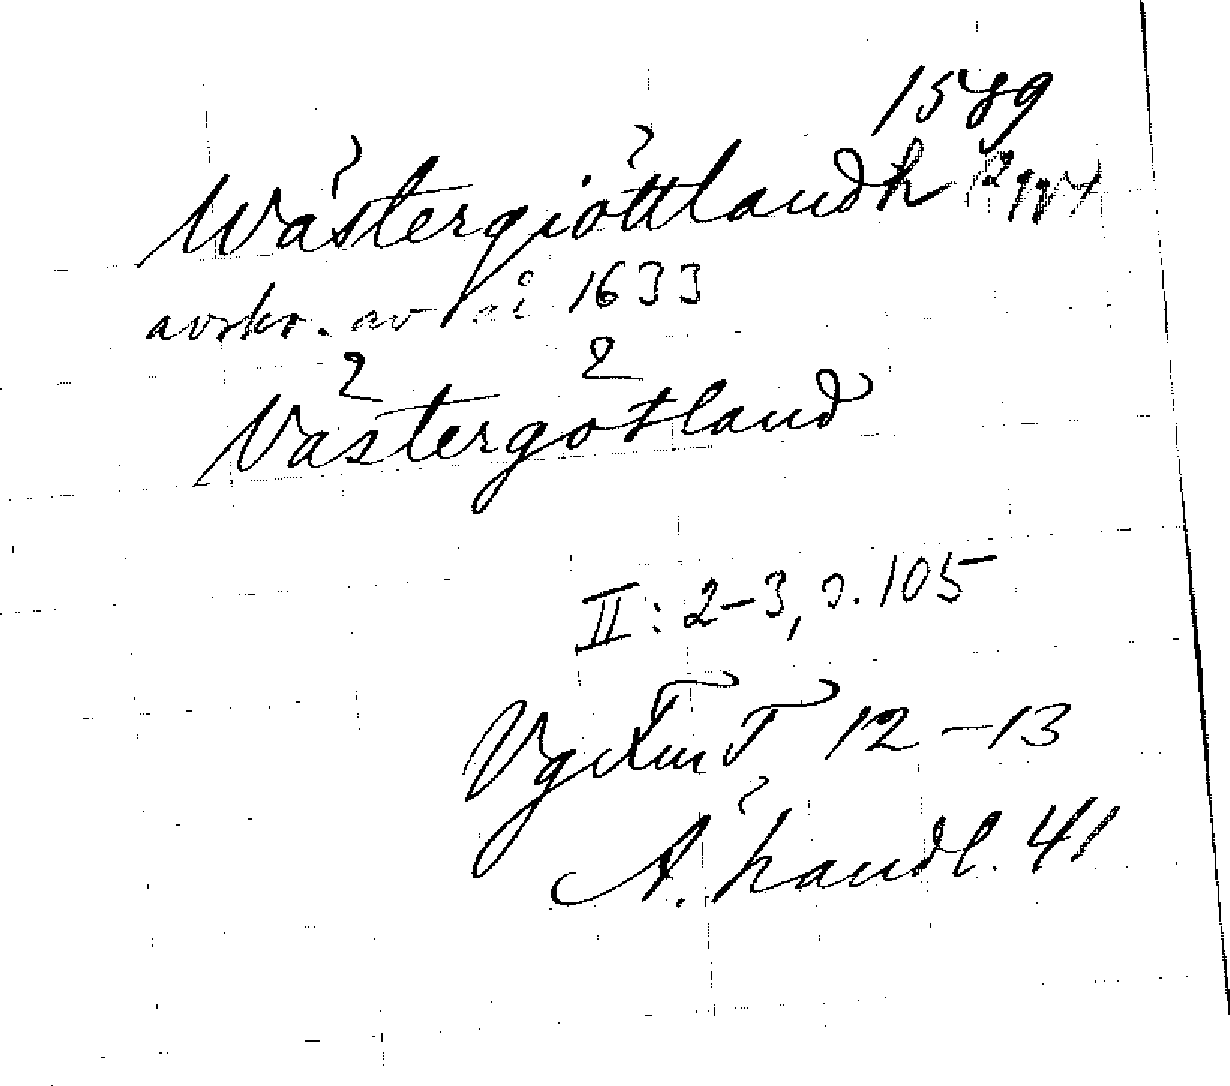 1589
Wästergiöttlandh
avskr. av i 1633
Västergötland
II: 2-3, s. 105
VgFmT 12-13
A. handl. 41